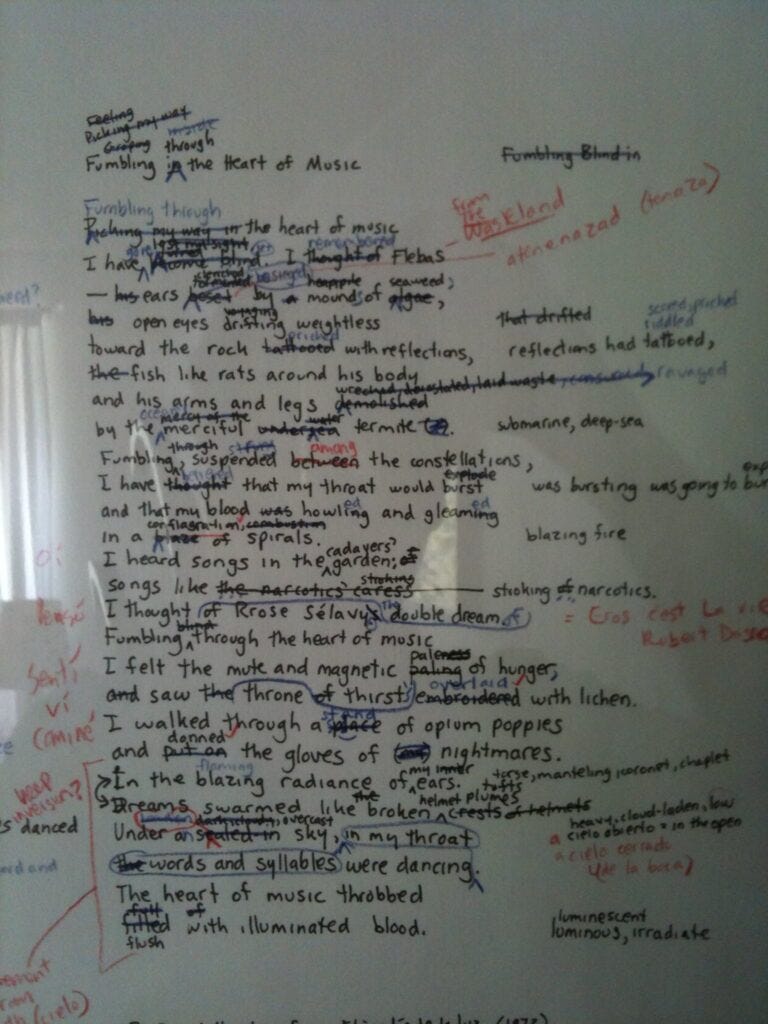 Feeling
Picking my way inside
Groping through
Fumbling in the Heart of Music
Fumbling Blind in
from the Wasteland
atenenazad (tenaza)
Fumbling through
Picking my way in the heart of music
gone lost my sight remembered
I have blind. I thought of Flebas
clenched
tormented besieged seaweed;
— his ears beset by a mound of algae,
his open eyes drifting weightless That drifted
voyaging
scored, pricked
riddled
pricked
toward the rock tattooed with reflections, reflections had tattooed,
the fish like rats around his body
wrecked, devastated, laid waste, consumed, ravaged
and his arms and legs demolished
ocean mercy of the water
by the merciful undersea termites. submarine, deep-sea
through among
Fumbling, suspended between the constellations,
explode
I have thought that my throat would burst was bursting was going to
and that my blood was howling and gleaming
ed ed
conflagration, combustion
in a blaze of spirals. blazing fire
oí cadavers?
I heard songs in the garden; of
stroking
songs like the narcotics' caress stroking of narcotics.
pensé I thought of Rrose Sélavy's double dream of = Eros c'est La vie
Robert
blind
Fumbling through the heart of music
paleness
sentí I felt the mute and magnetic paling of hunger,
overlaid
vi and saw the throne of thirst embroidered with lichen.
stand
caminé I walked through a place of opium poppies
donned
and put on the gloves of my nightmares.
keep inversion?
flaming my inner torse, manteling, coronet, chaplet
In the blazing radiance of ears. tufts
the helmet plumes
Dreams swarmed like broken crests of helmets
s danced overcast heavy, cloud-laden, low
Under a sealed-in sky, in my throat a cielo abierto = in the open
a cielo cerrado
(de la boca)
the words and syllables were dancing.
ard and
The heart of music throbbed
full of luminescent
filled with illuminated blood. luminous, irradiate
flush
(cielo)
(1972)